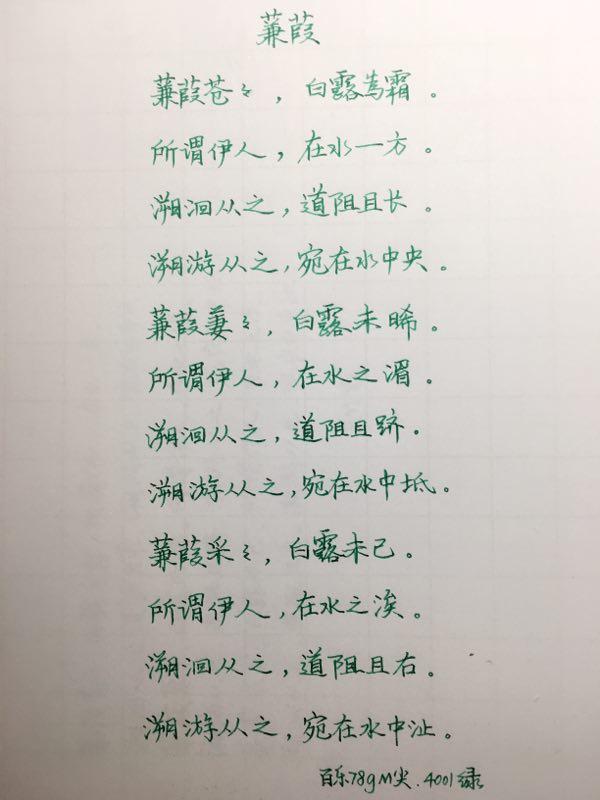 蒹葭
蒹葭苍々，白露为霜。
所谓伊人，在水一方。
溯洄从之，道阻且长。
溯游从之，宛在水中央。
蒹葭萋々，白露未晞。
所谓伊人，在水之湄。
溯洄从之，道阻且跻。
溯游从之，宛在水中坻。
蒹葭采々，白露未已。
所谓伊人，在水之涘。
溯洄从之，道阻且右。
溯游从之，宛在水中沚。
百乐78g M尖.4001绿